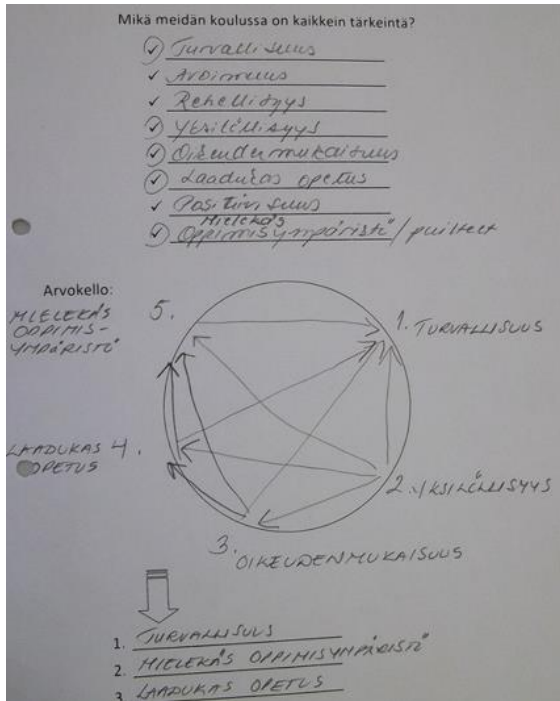 Mikä meidän koulussa on kaikkein tärkeintä?
✓ Turvallisuus
✓ Avoimuus
✓ Rehellisyys
✓ Yksilöllisyys
✓ Oikeudenmukaisuus
✓ Laadukas opetus
✓ Positiivisuus
Mielekäs
✓ Oppimisympäristö / puitteet
Arvokello:
MIELEKÄS
OPPIMIS-
YMPÄRISTÖ
5.
1. TURVALLISUUS
LAADUKAS 4.
OPETUS
2. YKSILÖLLISYYS
3. OIKEUDENMUKAISUUS
1. TURVALLISUUS
2. MIELEKÄS OPPIMISYMPÄRISTÖ
3 LAADUKAS OPETUS